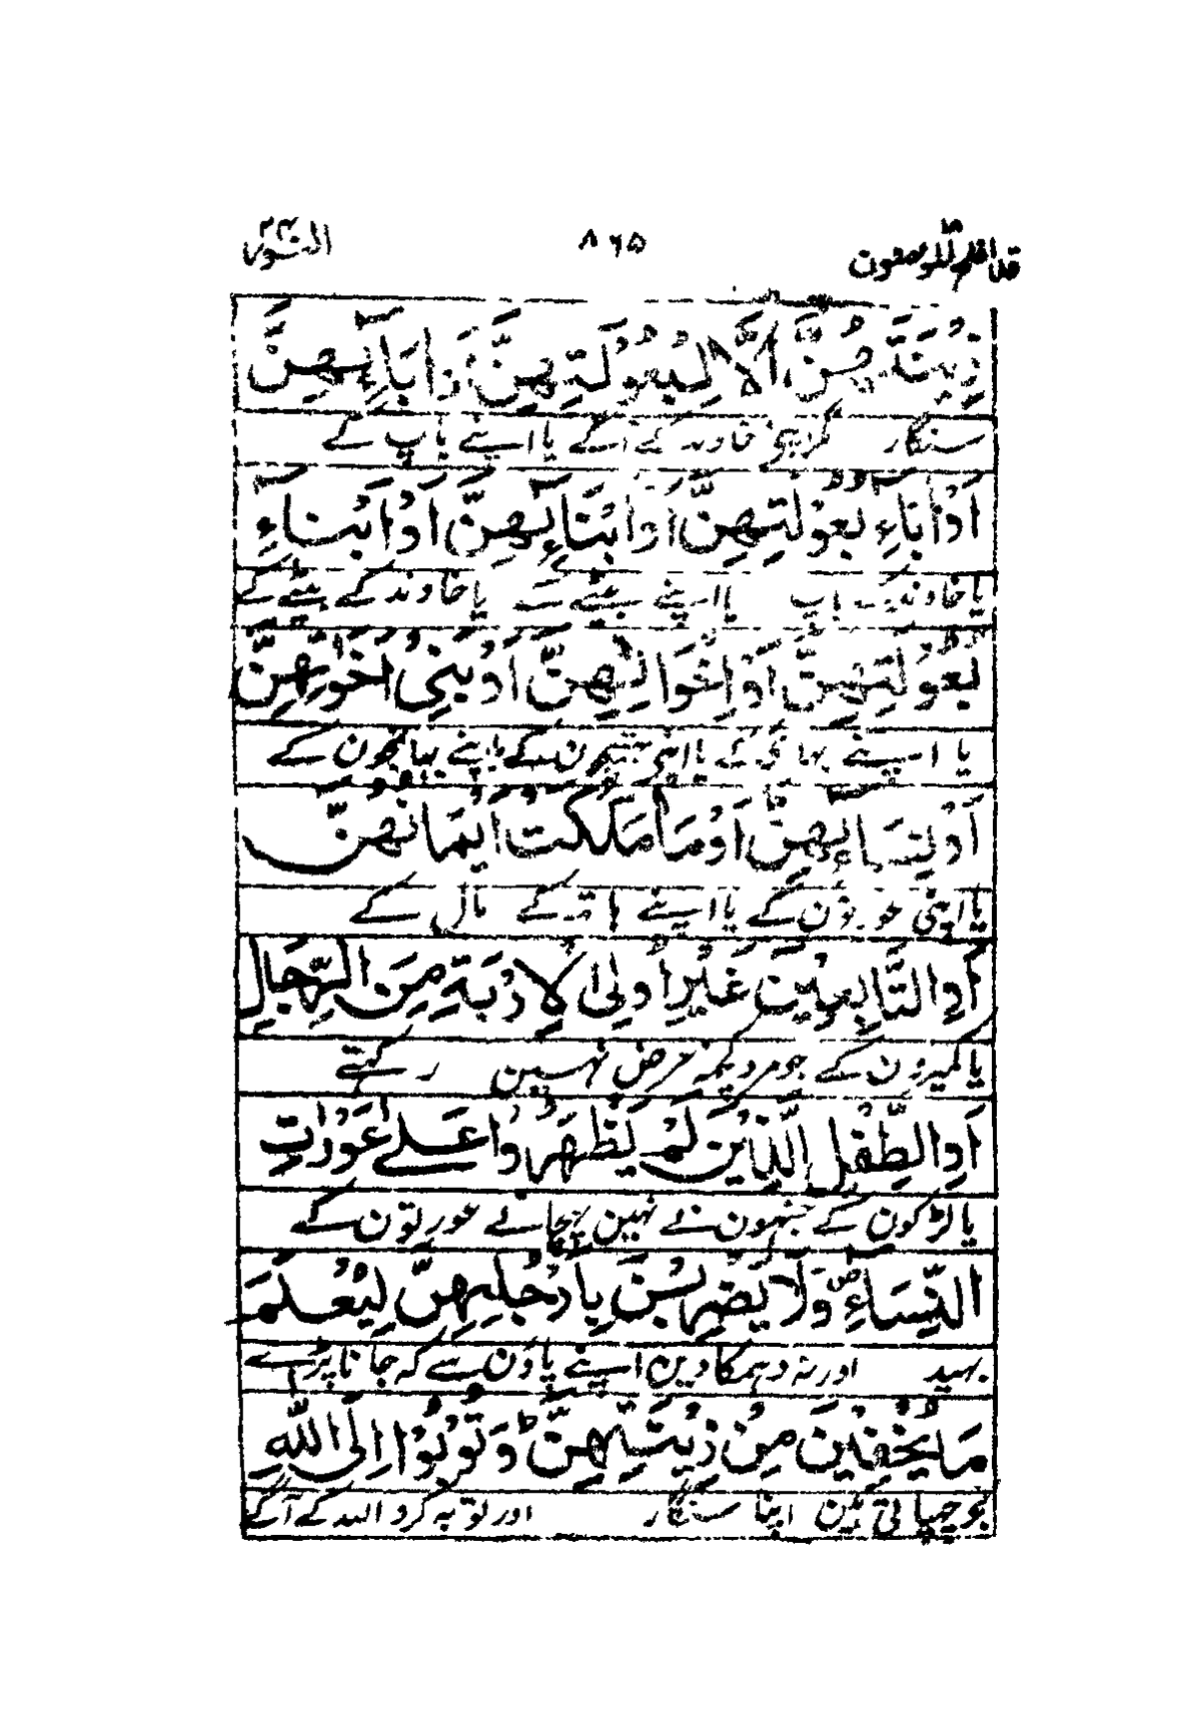 قد افلح المؤمنون ١٨ ٨٦٥ النور ٢٤
زِیْنَتَهُنَّ اِلَّا لِبُعُوْلَتِهِنَّ اَوْ اٰبَآءِهِنَّ
سنگار مگر اپنی خاوند کے آگے یا اپنے باپ کے
اَوْ اٰبَآءِ بُعُوْلَتِهِنَّ اَوْ اَبْنَآءِهِنَّ اَوْ اَبْنَآءِ
یا خاوند کے باپ یا اپنے بیٹے کے یا خاوند کے بیٹے کے
بُعُوْلَتِهِنَّ اَوْ اِخْوَانِهِنَّ اَوْ بَنِیْ اَخَوٰتِهِنَّ
یا اپنے بھائی کے یا اپنی بھتیجون کے یا اپنے بھانجون کے
اَوْ نِسَآءِهِنَّ اَوْ مَا مَلَكَتْ اَیْمَانُهُنَّ
یا اپنی عورتون کے یا اپنے ہاتہ کے مال کے
اَوِ التَّابِعِیْنَ غَیْرِ اُولِی الْاِرْبَةِ مِنَ الرِّجَالِ
یا کمیرون کے جو مرد کچہ غرض نہین رکہتے
اَوِ الطِّفْلِ الَّذِیْنَ لَمْ یَظْهَرُوْا عَلٰے عَوْرَاتِ
یا لڑکون کے جنہون نے نہین پہچانے عورتون کے
النِّسَآءِ ص وَلَا یَضْرِبْنَ بِاَرْجُلِهِنَّ لِیُعْلَمَ
بہید اور نہ دہمکا دین اپنے پاؤن سے کہ جانا پڑے
مَا یُخْفِیْنَ مِنْ زِیْنَتِهِنَّ ط وَتُوْبُوْا اِلَی اللّٰهِ
جو چہپاتی ہین اپنا سنگار اور توبہ کرو اللہ کے آگے